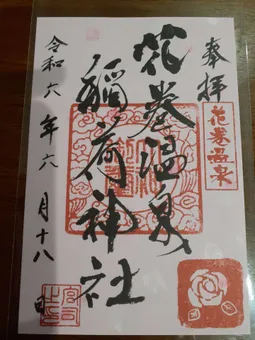 奉拝
花巻温泉
花巻温泉
稲荷神社
令和六年六月十八日